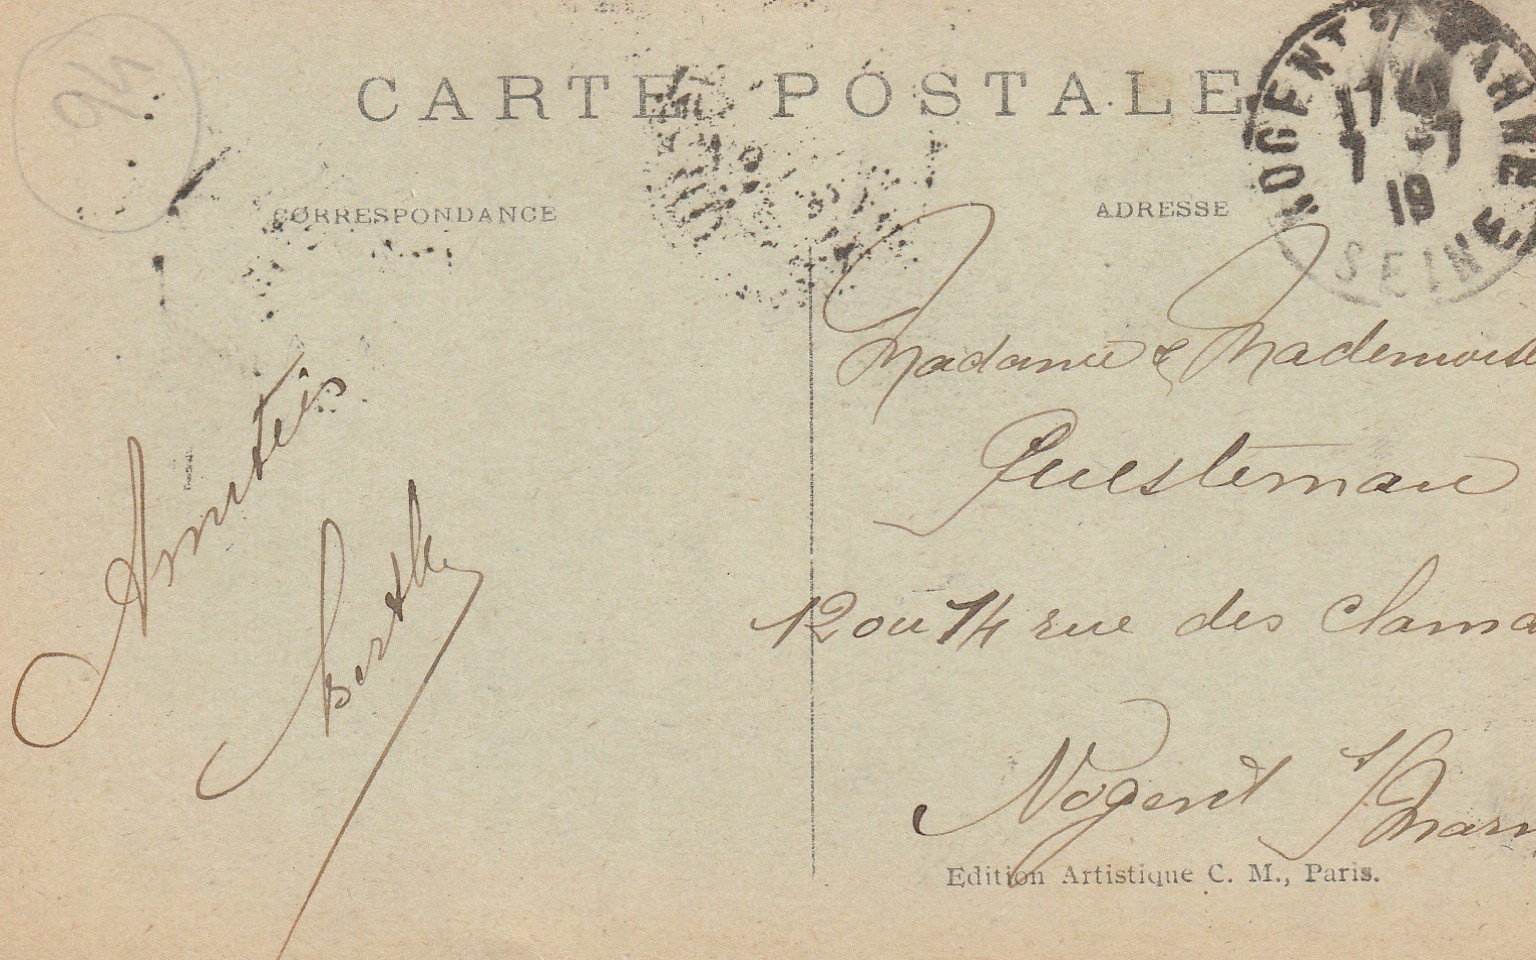 CARTE POSTALE
CORRESPONDANCE
ADRESSE
NOGENT S MARNE
19
SEINE
Amitiés
Berthe
Madame & Mademoise
Questeman
12 ou 14 rue des Clama
Nogent s/ Marn
Edition Artistique C. M., Paris.